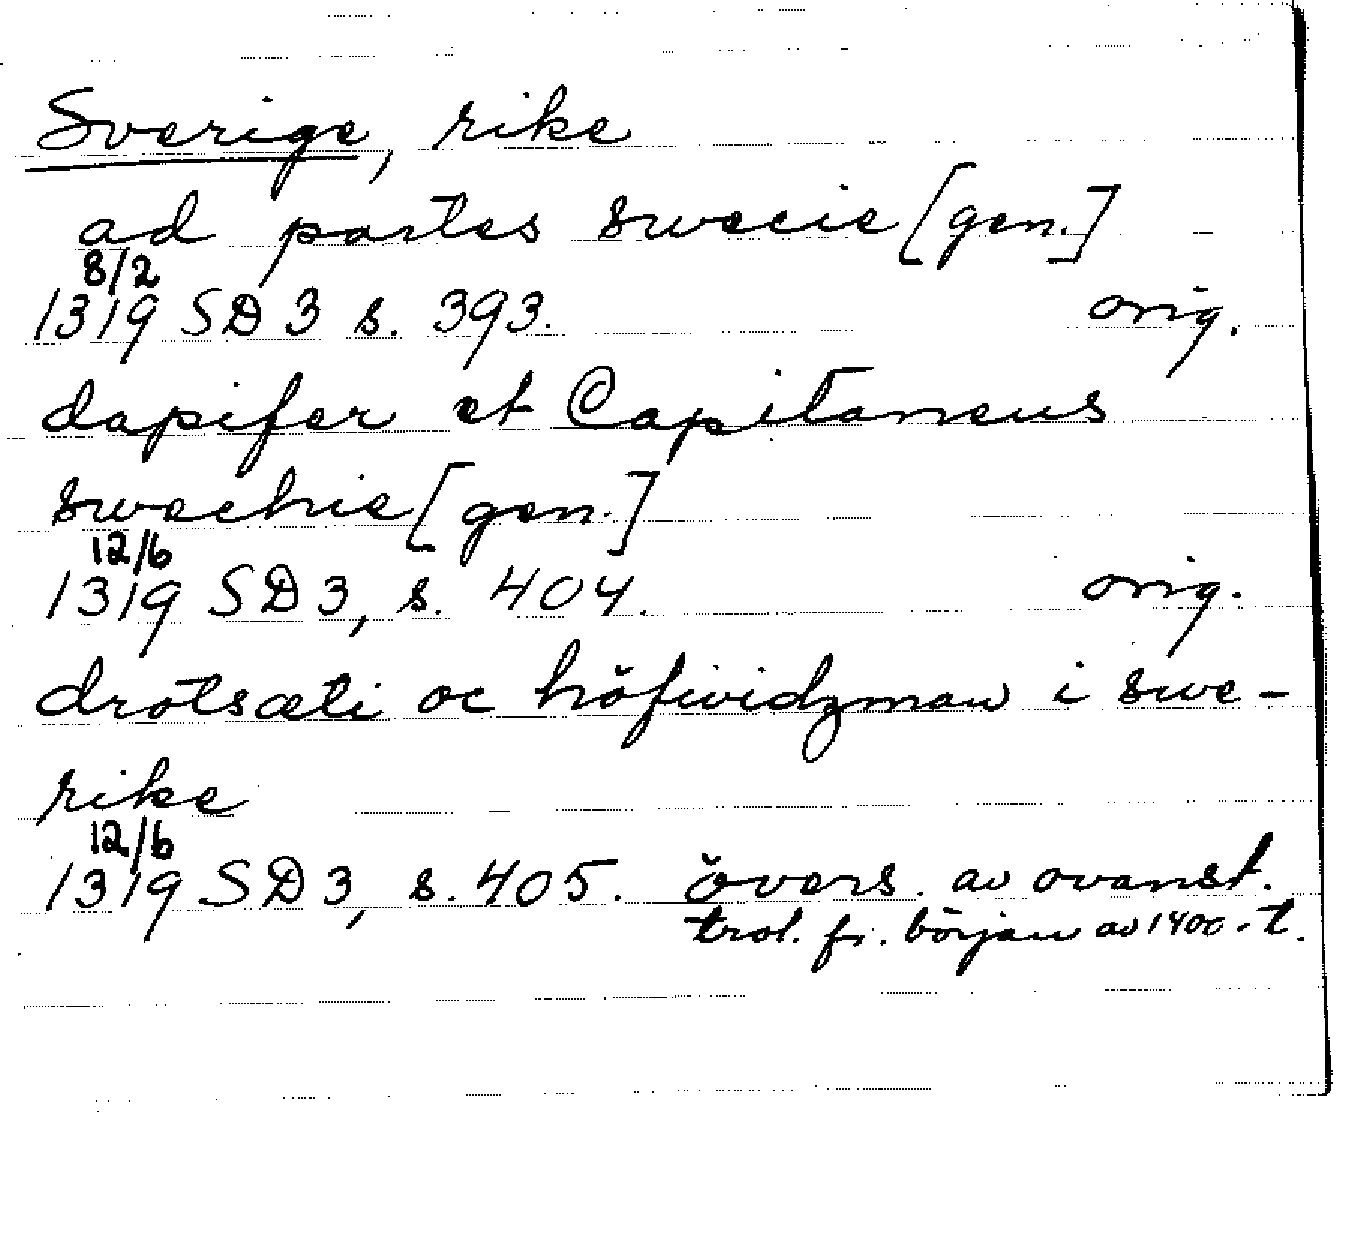 Sverige, rike
ad partes swecie [gen.]
8/2
1319 SD 3 s. 393. orig.
dapifer et Capitaneus
swechie [gen.]
12/6
1319 SD 3, s. 404. orig.
drotsæti oc höfwidzman i swe-
rike
12/6
1319 SD 3, s. 405. övers. av ovanst.
trol. fr. början av 1400-t.